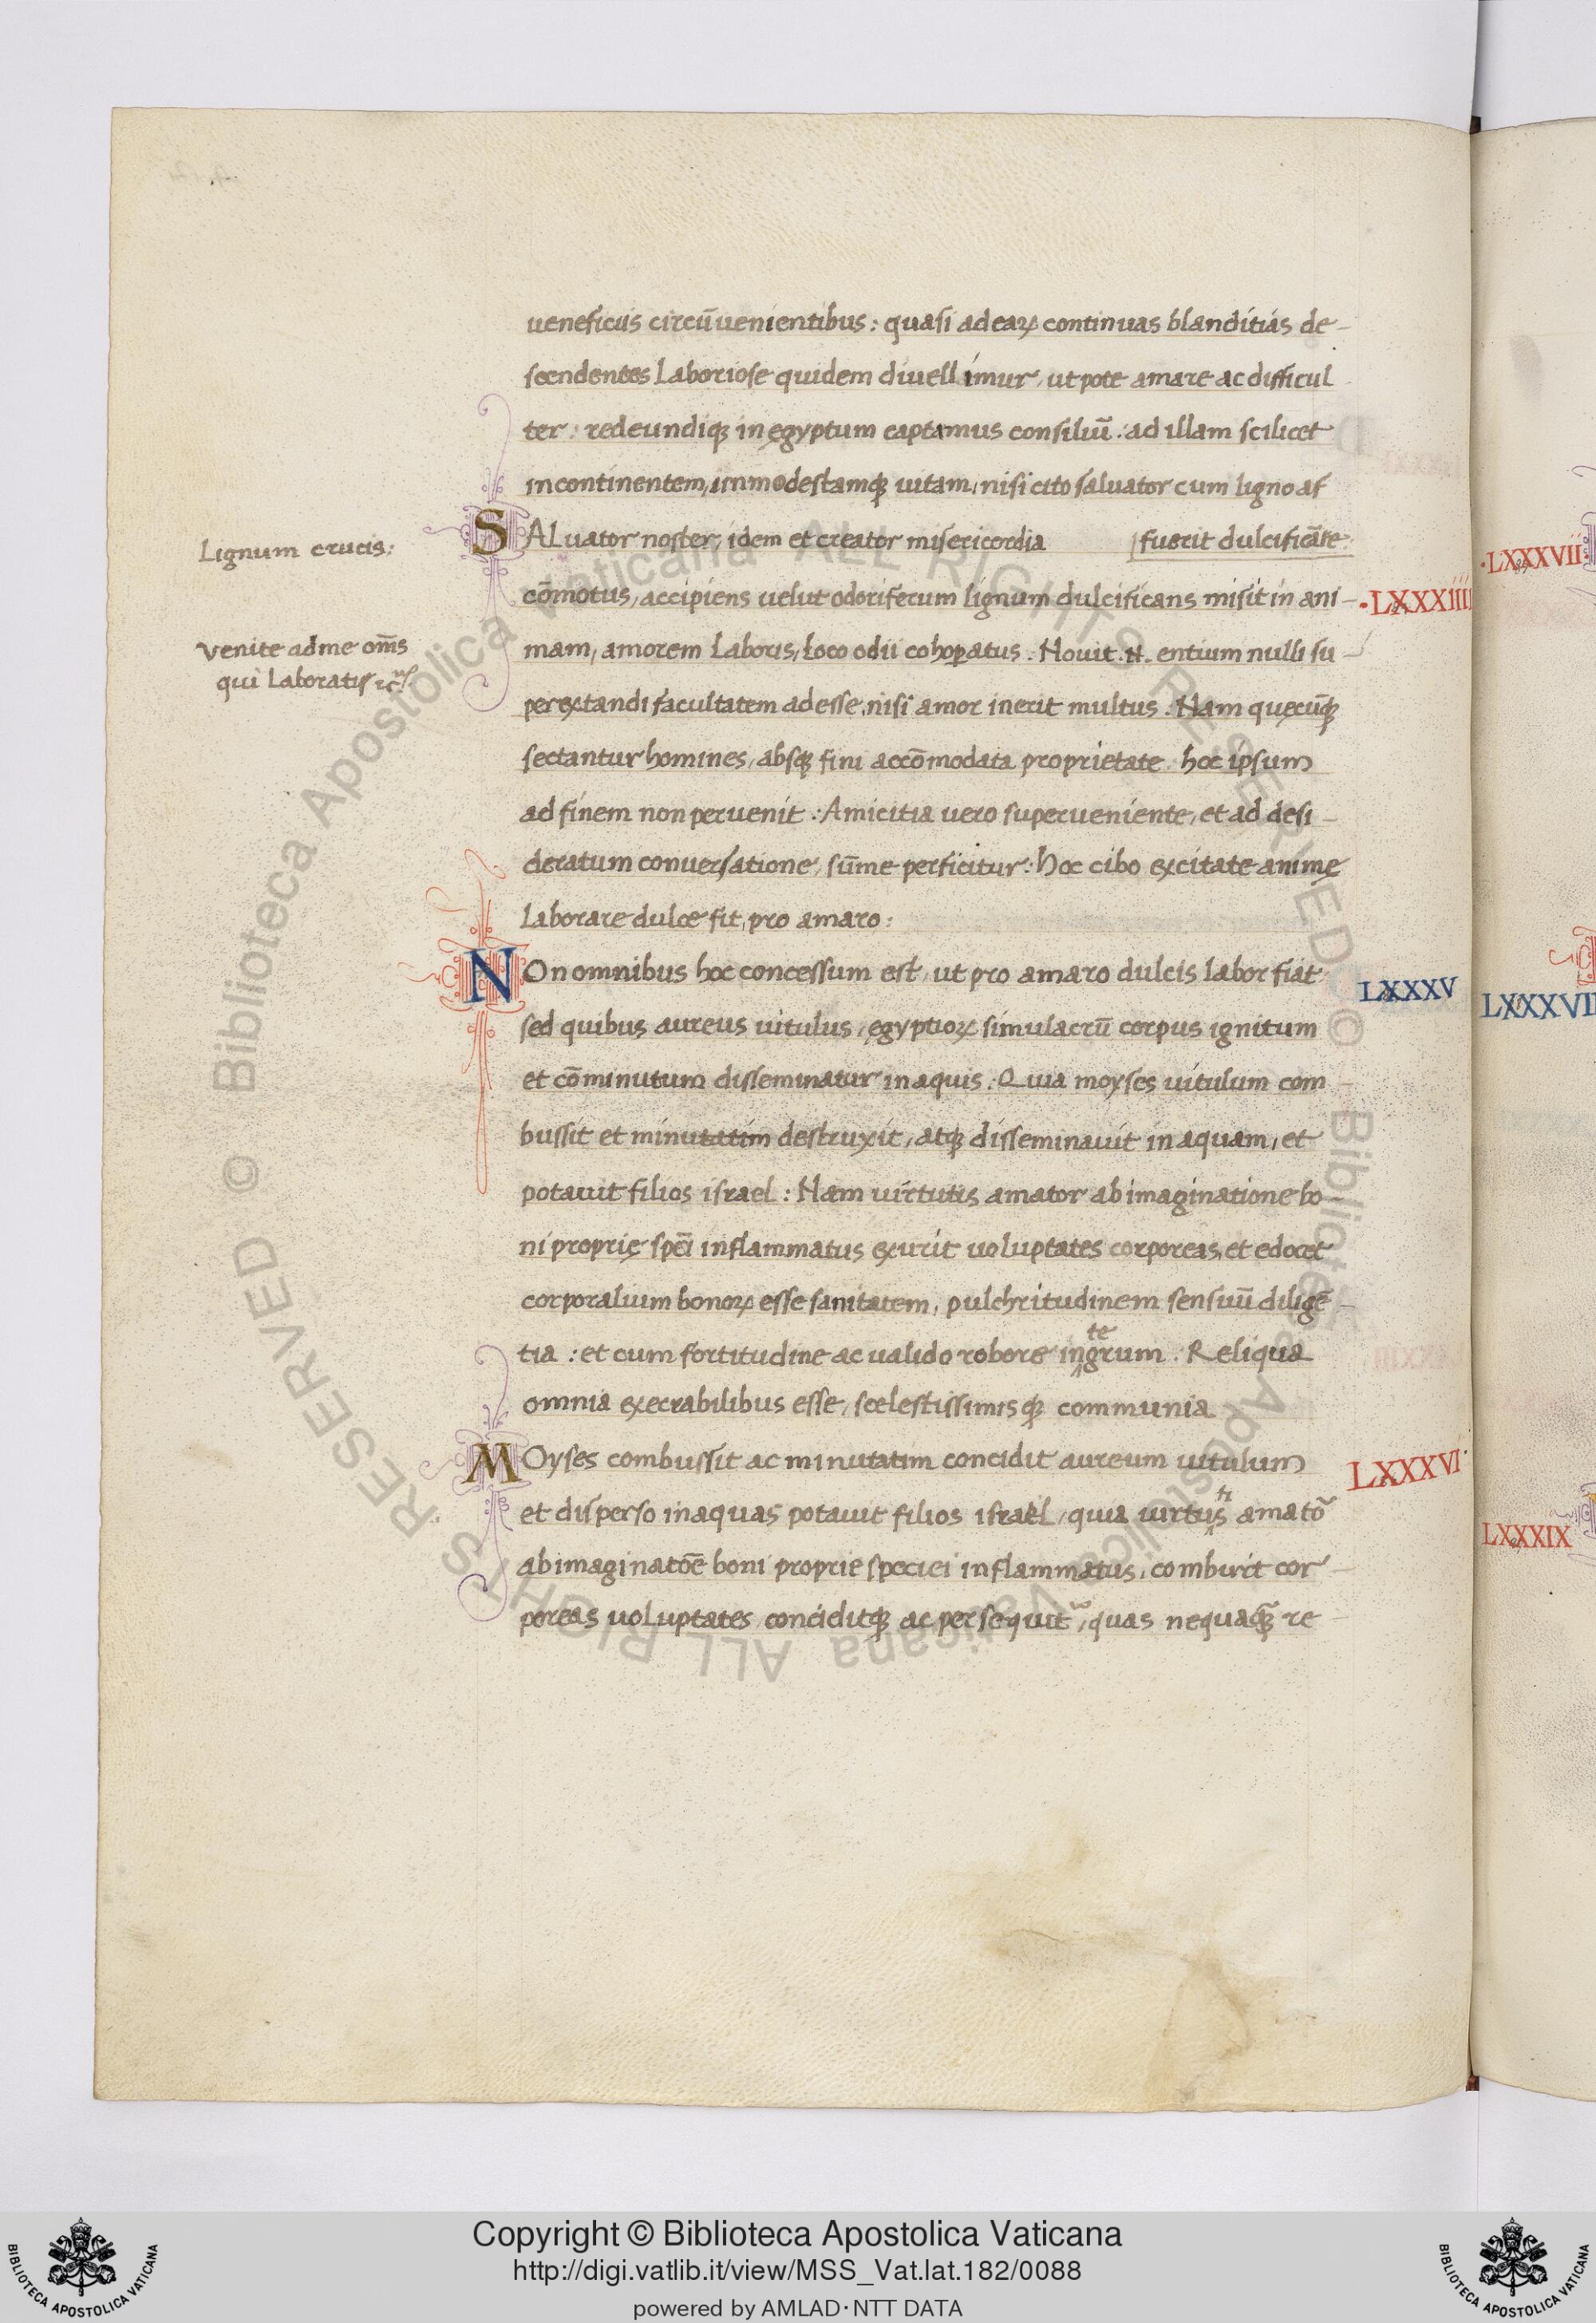 ueneficiis circūuenientibus : quasi ad eaꝝ continuas blanditias de-
scendentes Laboriose quidem diuellimur, ut pote amare ac difficul
ter : redeundiqꝫ in ęgyptum captamus consiliū : ad illam scilicet
incontinentem, immodestamqꝫ uitam, nisi cito saluator cum ligno af
SALuator noster, idem et creator misericordia [fuerit dulcificāte.
Lignum crucis:
cōmotus, accipiens uelut odoriferum lignum dulcificans misit in ani-
·LXXXIIII
mam, amorem Laboris, Loco odii cohoꝑatus. Nouit .N. entium nulli su-
Venite ad me om̄s
qui Laboratis
perextandi facultatem adesse, nisi amor inerit multus. Nam quęcūqꝫ
sectantur homines, absqꝫ fini accōmodata proprietate hoc ipsum
ad finem non peruenit : Amicitia uero superueniente, et ad desi-
deratum conuersatione, sūme perficitur : hoc cibo excitate animę
Laborare dulce fit, pro amaro :
NOn omnibus hoc concessum est, ut pro amaro dulcis labor fiat
LXXXV
sed quibus aureus uitulus, ęgyptioꝝ simulacrū corpus ignitum
et cōminutum disseminatur in aquis. Quia moyses uitulum com-
bussit et minutatim destruxit, atqꝫ disseminauit in aquam, et
potauit filios israel : Nam uirtutis amator ab imaginatione bo-
ni proprię spēi inflammatus exurit uoluptates corporeas, et edocet
corporalium bonoꝝ esse sanitatem, pulchritudinem sensuū diligē-
tia : et cum fortitudine ac ualido robore integrum. Reliqua
omnia execrabilibus esse, scelestissimisqꝫ communia
MOyses combussit ac minutatim concidit aureum uitulum
LXXXVI·
et disperso in aquas potauit filios israel, quia uirtutis amatō
ab imaginatōe boni proprie speciei inflammatus, comburit cor-
poreas uoluptates, conciditqꝫ ac persequit᷑, quas nequaqꝫ̄ re-
·LXXXVII
LXXXVII
LXXXIX
© Biblioteca Apostolica Vaticana ALL RIGHTS RESERVED © Biblioteca Apostolica Vaticana ALL RIGHTS RESERVED
BIBLIOTECA APOSTOLICA VATICANA
Copyright © Biblioteca Apostolica Vaticana
http://digi.vatlib.it/view/MSS_Vat.lat.182/0088
powered by AMLAD·NTT DATA
BIBLIOTECA APOSTOLICA VATICANA